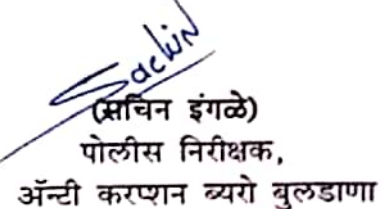 Sachin
(सचिन इंगळे)
पोलीस निरीक्षक,
ॲन्टी करप्शन ब्यरो बुलडाणा